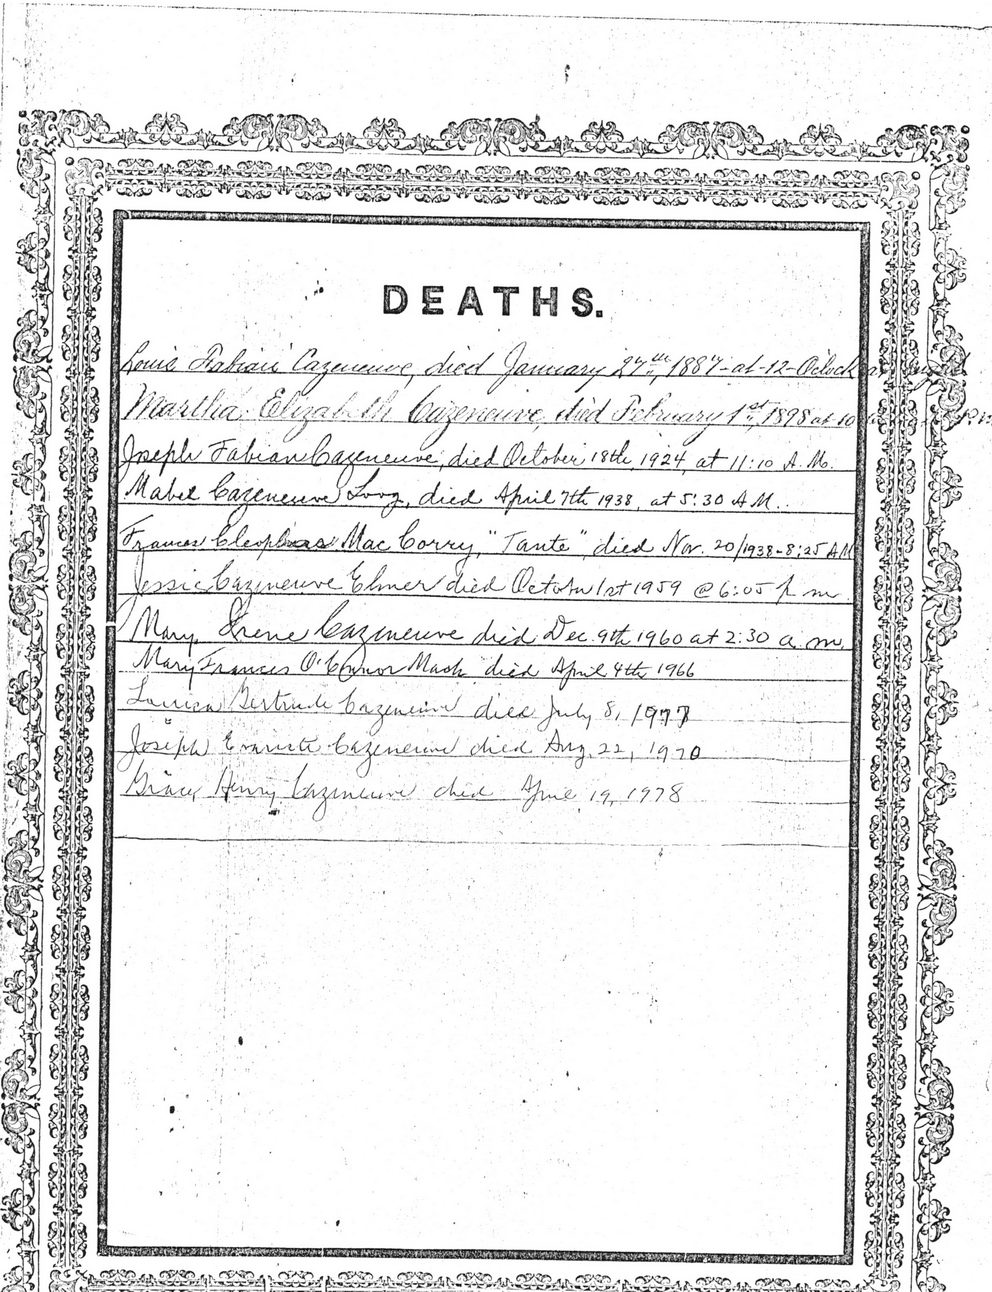 DEATHS.
Louis Fabian Cazeneuve, died January 27th, 1887 - at - 12 - O'clock
Martha. Elizabeth Cazeneuve, died February 1st, 1898 at 10 P.M.
Joseph Fabian Cazeneuve, died October 18th 1924, at 11:10 A.M.
Mabel Cazeneuve Long, died April 7th 1938, at 5:30 A.M..
Frances Cleophas Mac Corry, "Tante", died Nov. 20/1938 - 8:25 A.M
Jessie Cazeneuve Elmer died October 1st 1959 @ 6:05 p m
Mary Irene Cazeneuve died Dec. 9th 1960 at 2:30 a.m.
Mary Frances O'Connor Mash died April 4th 1966
Gertrude Cazeneuve died July 8, 1977
Joseph Evariste Cazeneuve died Aug. 22, 1970
Grace Henry Cazeneuve died April 19, 1978